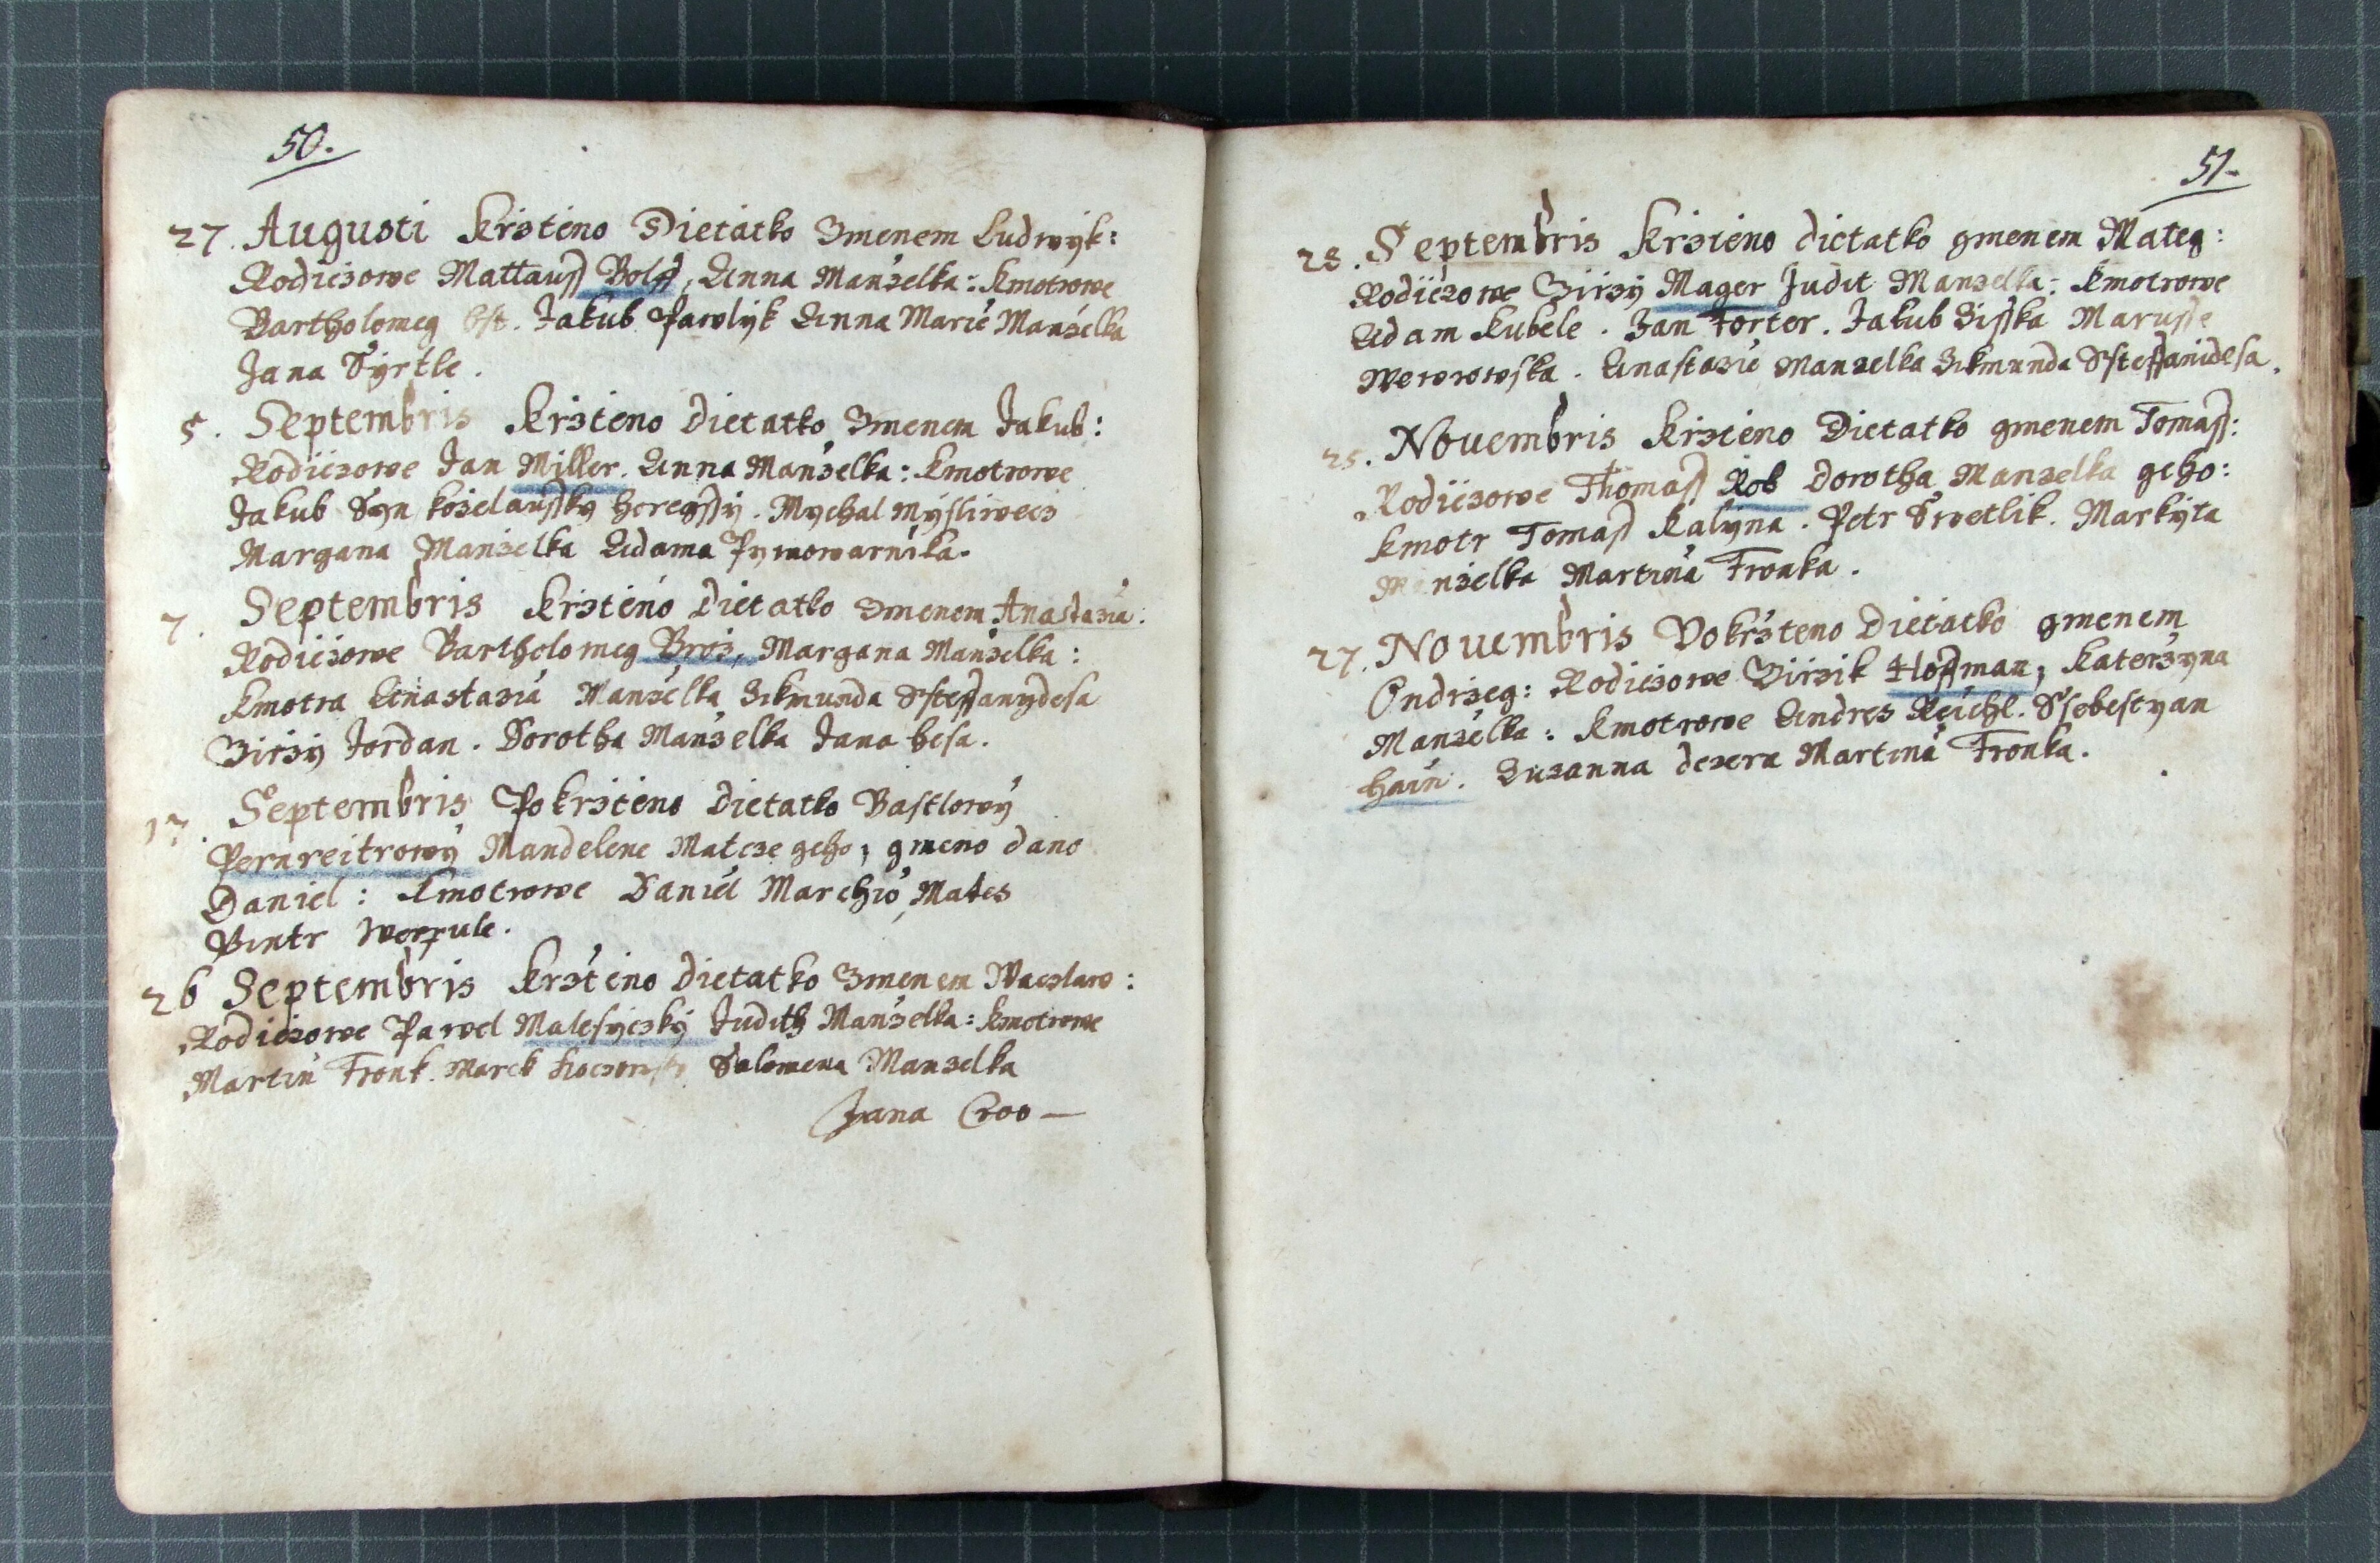 50.
27. Augusti Krzteno Dietatko Jmenem Ludwyk:
Rodiczowe Mattauss Bolff, Anna Manzelka: Kmotrowe
Bartholomeg Jakub Pawlyk Anna Marie Manzelka
Jana Syrtle.
5. Septembris Krzteno Dietatko Jmenem Jakub:
Rodiczowe Jan Miller. Anna Manzelka: Kmotrowe
Jakub Syn kozelaussky horegssy. Mychal Myssliwecz
Margana Manzelka Adama Pywowarnika.
7. Septembris Krzteno Dietatko Jmenem Anastazia:
Rodiczowe Bartholomeg Broz, Margana Manzelka:
Kmotra Anastazia Manzelka ZikmundaSsteffanydesa
Jirzy Jordan. Dorotha Manzelka Jana hesa.
Septembris Pokrzteno Dietatko Bastlowy
Pernreitrowy Mandelene Matcze geho; gmeno dano
Daniel: Kmotrowe Daniel Marchio, Mates
Bintr
26 Septembris Krzteno Dietatko Jmenem Waczlaw:
Rodiczowe Pawel Malesyczky Judith Manzelka: Kmotrowe
Martin Fronk. Marek Salomena Manzelka
Jana Croo —
51.
28. Septembris Krzteno dietatko gmenem Mateg:
Rodiczowe Jirzy Mager Judit Manzelka: Kmotrowe
Adam Kubele. Jan Forter. Jakub Zisska Marusse
Wewrowska. Anastazie Manzelka Zikmunda Ssteffanidesa.
25. Nouembris Krzteno Dietatko gmenem Tomass:
Rodiczowe Thomass Rob Dorotha Manzelka geho:
Kmotr Tomass Kalyna. Petr Swetlik. Markyta
Manzelka Martina Fronka.
27. Nouembris Pokrzteno Dietatko gmenem
Ondrzeg: Rodiczowe Jirzik Hoffman; Katerzyna
Manzelka: Kmotrowe Andres Reichl. Ssebestyan
hain. Zuzanna dczera Martina Fronka.